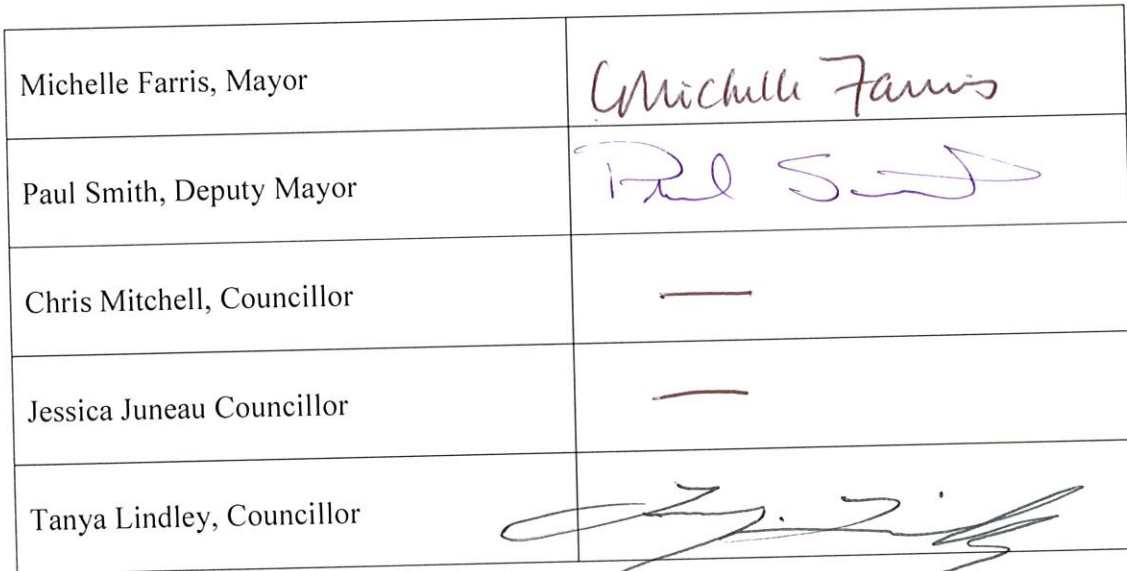 Michelle Farris, Mayor
Michelle Farris
Paul Smith, Deputy Mayor
Paul Smith
Chris Mitchell, Councillor
—
Jessica Juneau Councillor
—
Tanya Lindley, Councillor